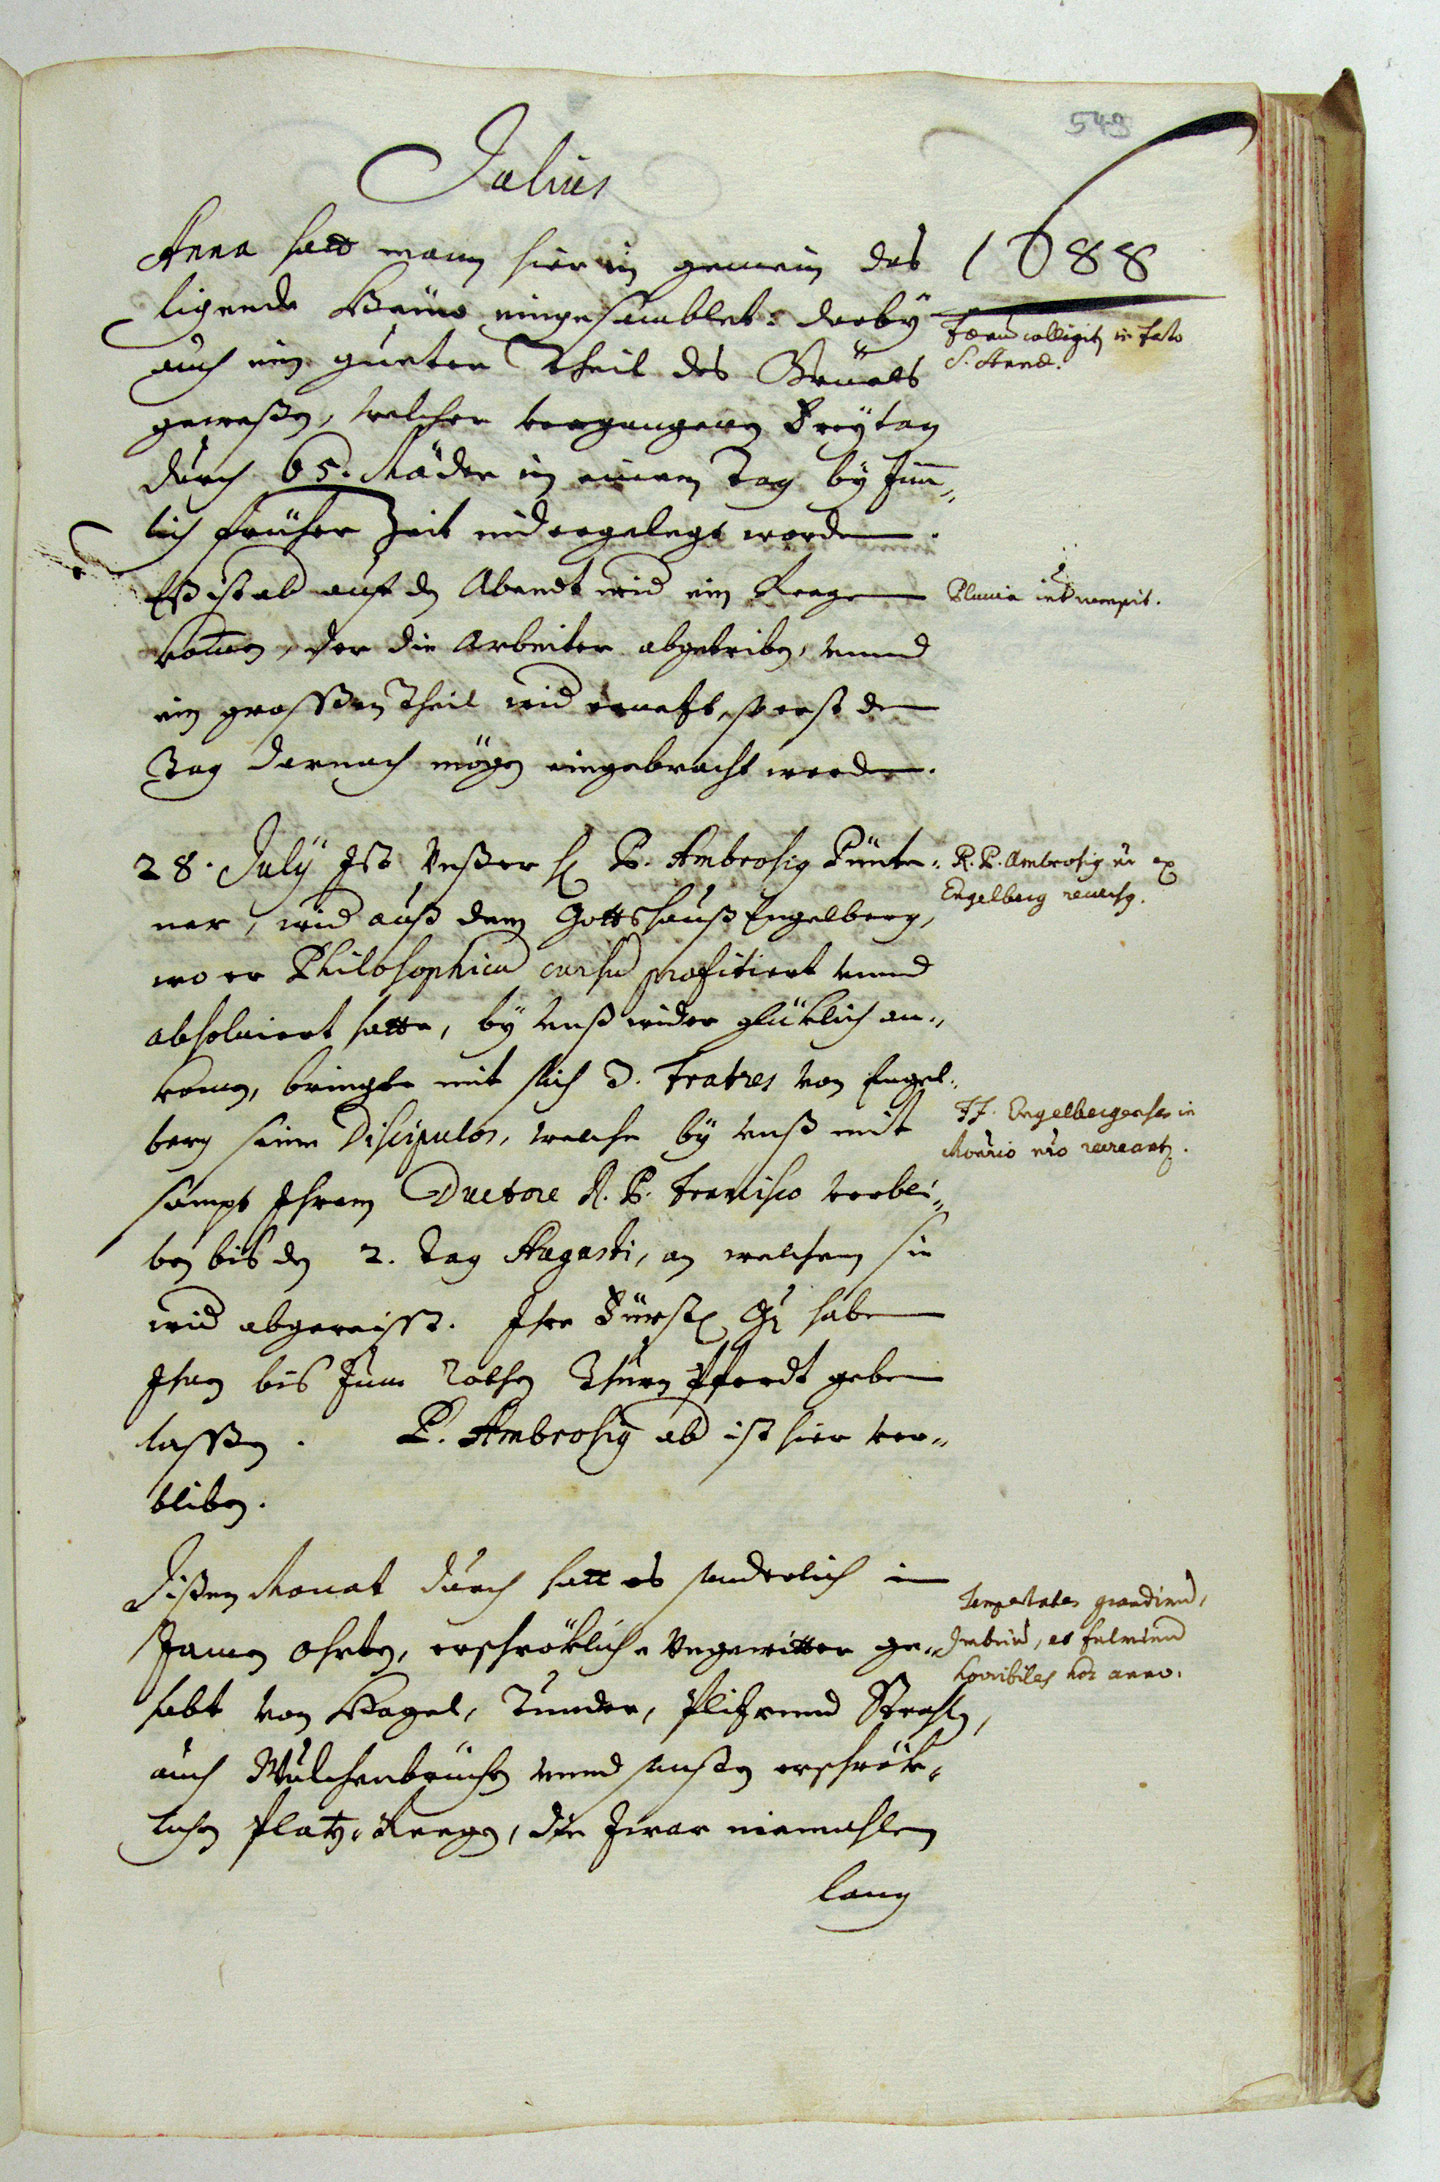 549
Julius
1688
Anna hatt mann hier in gemein das
ligende Haüw eingesamblet: darby
auch ein gueter Theil des Brüels
geweßen, welcher vergangnen Freytag
durch 65. Mäder in einem Tag by zim-
lich früher Zeit nidergelegt worden.
Eß ist ab auf den Abendt wid ein Regen
komen, der die Arbeiter abgetriben, unnd
ein grossen Theil wid genetzt, so erst den
Tag darnach mögen eingebracht werden.
Foenu colligit in festo
S. Annae.
Pluvia interrumpit.
28. July Ist Unßer H P. Ambrosig Pünte-
ner, wid auß dem Gottshauß Engelberg,
wo er Philosophicu cursu profitiert unnd
absolviert hatte, by unß wider glüklich an-
komen, bringte mit sich 3. Fratres von Engel-
berg seine Discipulos, welche by unß mit
sampt Ihrem Ductore R. P. Francisco verbli-
ben bis den 2. Tag Augusti, an welchem sie
wid abgereisst. Ihre Fürstl Gn haben
Ihnen bis zum rothen Thurn Pferdt geben
lassen. P. Ambrosig ab ist hier ver-
bliben.
R. P. Ambrosig nr ex
Engelberg reversq.
FF. Engelbergenses in
Mon'rio n'ro recreant.
Dißen Monat durch hatt es sonderlich in
ohrten, erschröklich Ungewitter ge-
habt von Hagel, Tunder, Plitz unnd Strahln,
auch Wulchenbrüchen unnd sonsten erschrök-
lichen Platz-Reegen, die zwar niemahlen
lang
Tempestates grandinu,
Imbriu, et fulminu
horribiles hoc anno.